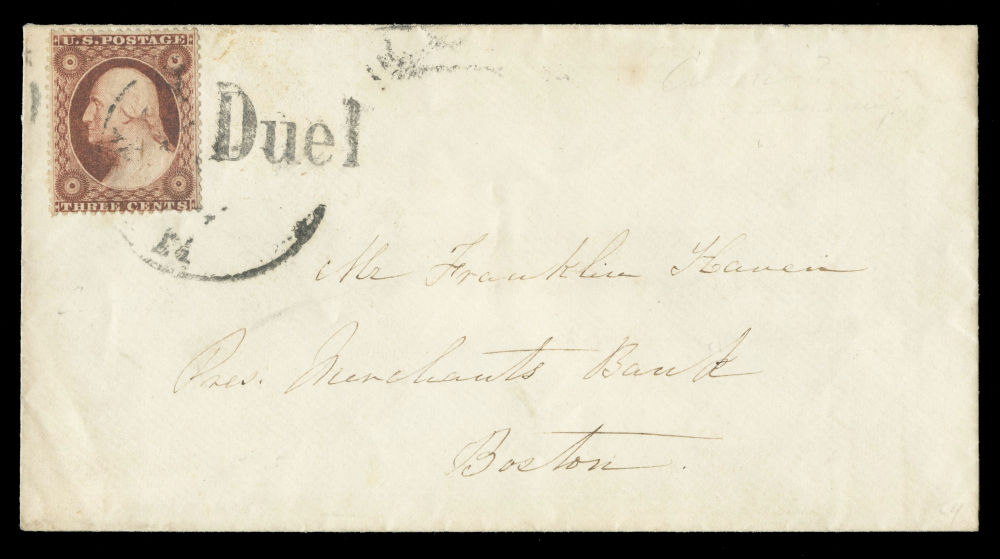 U.S. POSTAGE
THREE CENTS
Due 1
Mr Franklin Haven
Pres. Merchants Bank
Boston.